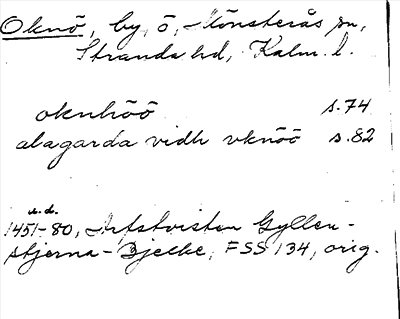 Oknö, by, ö, Mönsterås sn,
Stranda hd, Kalm. l.
oknhöö s.74
alagarda vidh vknöö s.82
u.d.
1451-80, Arfstvisten Gyllen-
stjerna-Bjelke, FSS 134, orig.